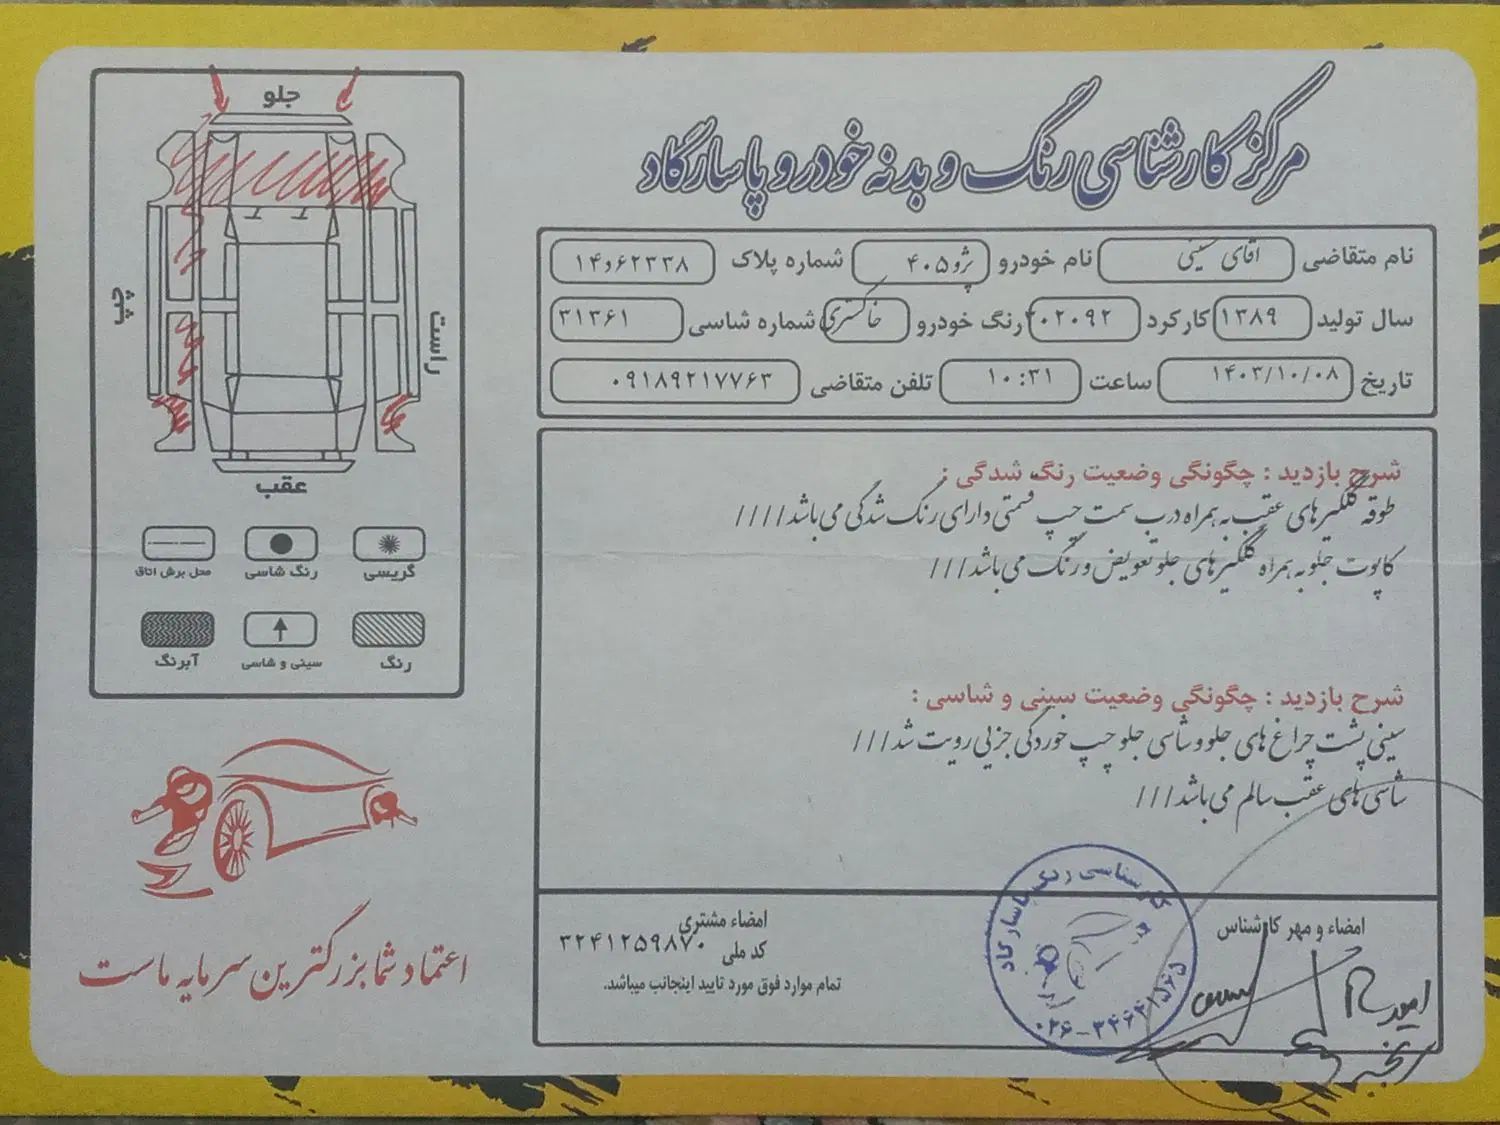 مرکز کارشناسی رنگ و بدنه خودرو پاسارگاد
نام متقاضی آقای حسینی نام خودرو پژو ۴۰۵ شماره پلاک ۱۴و۶۲۳۳۸
سال تولید ۱۳۸۹ کارکرد ۳۰۲۰۹۲ رنگ خودرو خاکستری شماره شاسی ۳۱۳۶۱
تاریخ ۱۴۰۳/۱۰/۰۸ ساعت ۱۰:۳۱ تلفن متقاضی ۰۹۱۸۹۲۱۷۷۶۳
شرح بازدید : چگونگی وضعیت رنگ شدگی :
طوقه گلگیرهای عقب به همراه درب سمت چپ قسمتی دارای رنگ شدگی می باشد////
کاپوت جلو به همراه گلگیرهای جلو تعویض و رنگ می باشد///
شرح بازدید : چگونگی وضعیت سینی و شاسی :
سینی پشت چراغ های جلو و شاسی جلو چپ خوردگی جزیی رویت شد///
شاسی های عقب سالم می باشد///
امضاء و مهر کارشناس
کارشناسی رنگ پاسارگاد
۰۲۶-۳۴۶۴۱۵۶۵
امضاء مشتری
کد ملی ۳۲۴۱۲۵۹۸۷۰
تمام موارد فوق مورد تایید اینجانب میباشد.
جلو
چپ
راست
عقب
گریسی
رنگ شاسی
محل برش اتاق
رنگ
سینی و شاسی
آبرنگ
اعتماد شما بزرگترین سرمایه ماست